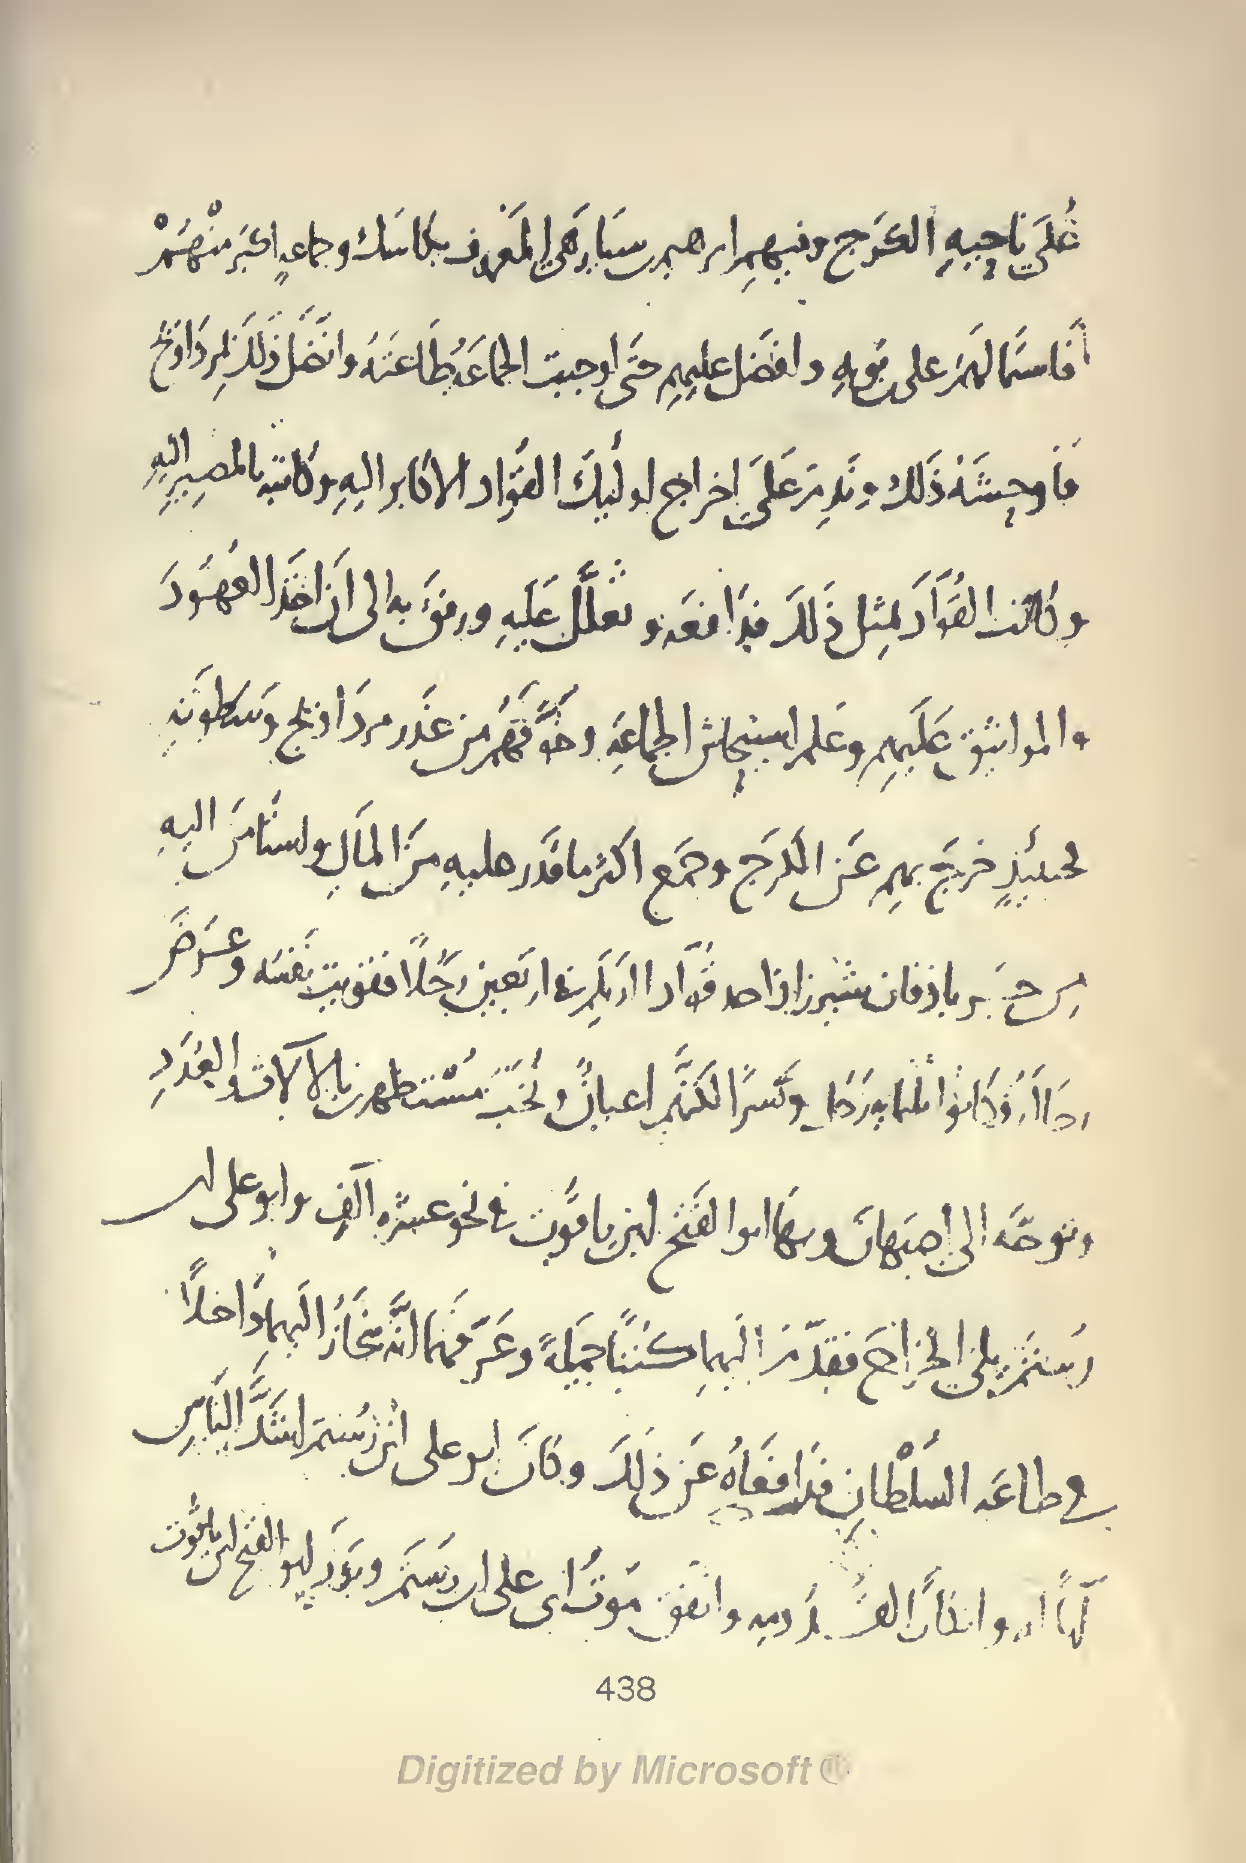 على ناحيه الكرج وفيهم ابرهيم بن سياهى المعروف بكاسك وجماعه اكبر منهم
فاستمالهم على بن بويه وافضل عليهم حتى اوجبت الجماعه طاعته واتصل ذلك بمرداويج
فاوحشه ذلك وندم على اخراج اوليك القواد الاكابر اليه وكاتبه بالمصير اليه
وكاتب القواد بمثل ذلك فدافعه وتعلل عليه ورفق به الى ان اخذ العهود
والمواثيق عليهم وعلم استيحاش الجماعه وخوفهم من غدر مرداويج وسطوته
فحينيذ خرج بهم عن الكرج وجمع اكثر ما قدر عليه من المال واستامن اليه
من جرباذقان شيرزاد احد قواد الديلم فى اربعين رجلا فقويت نفسه وعرض
رجاله وكانوا ثلثمايه رجل ونسرا لكنهم اعيان ونخب مستظهرين بالالات والعدد
وتوجه الى اصبهان وبها ابو الفتح بن ياقوت فى نحو عشره الف وابو على بن
رستم يلى الخراج فقدم اليهما كتبا جميله وعرفهما انه منحاز اليهما داخلا
فى طاعه السلطان فدافعاه عن ذلك وكان ابو على بن رستم اشد الناس
واتفق موت ابى على بن رستم وبرز ابو الفتح بن ياقوت
438
Digitized by Microsoft ®